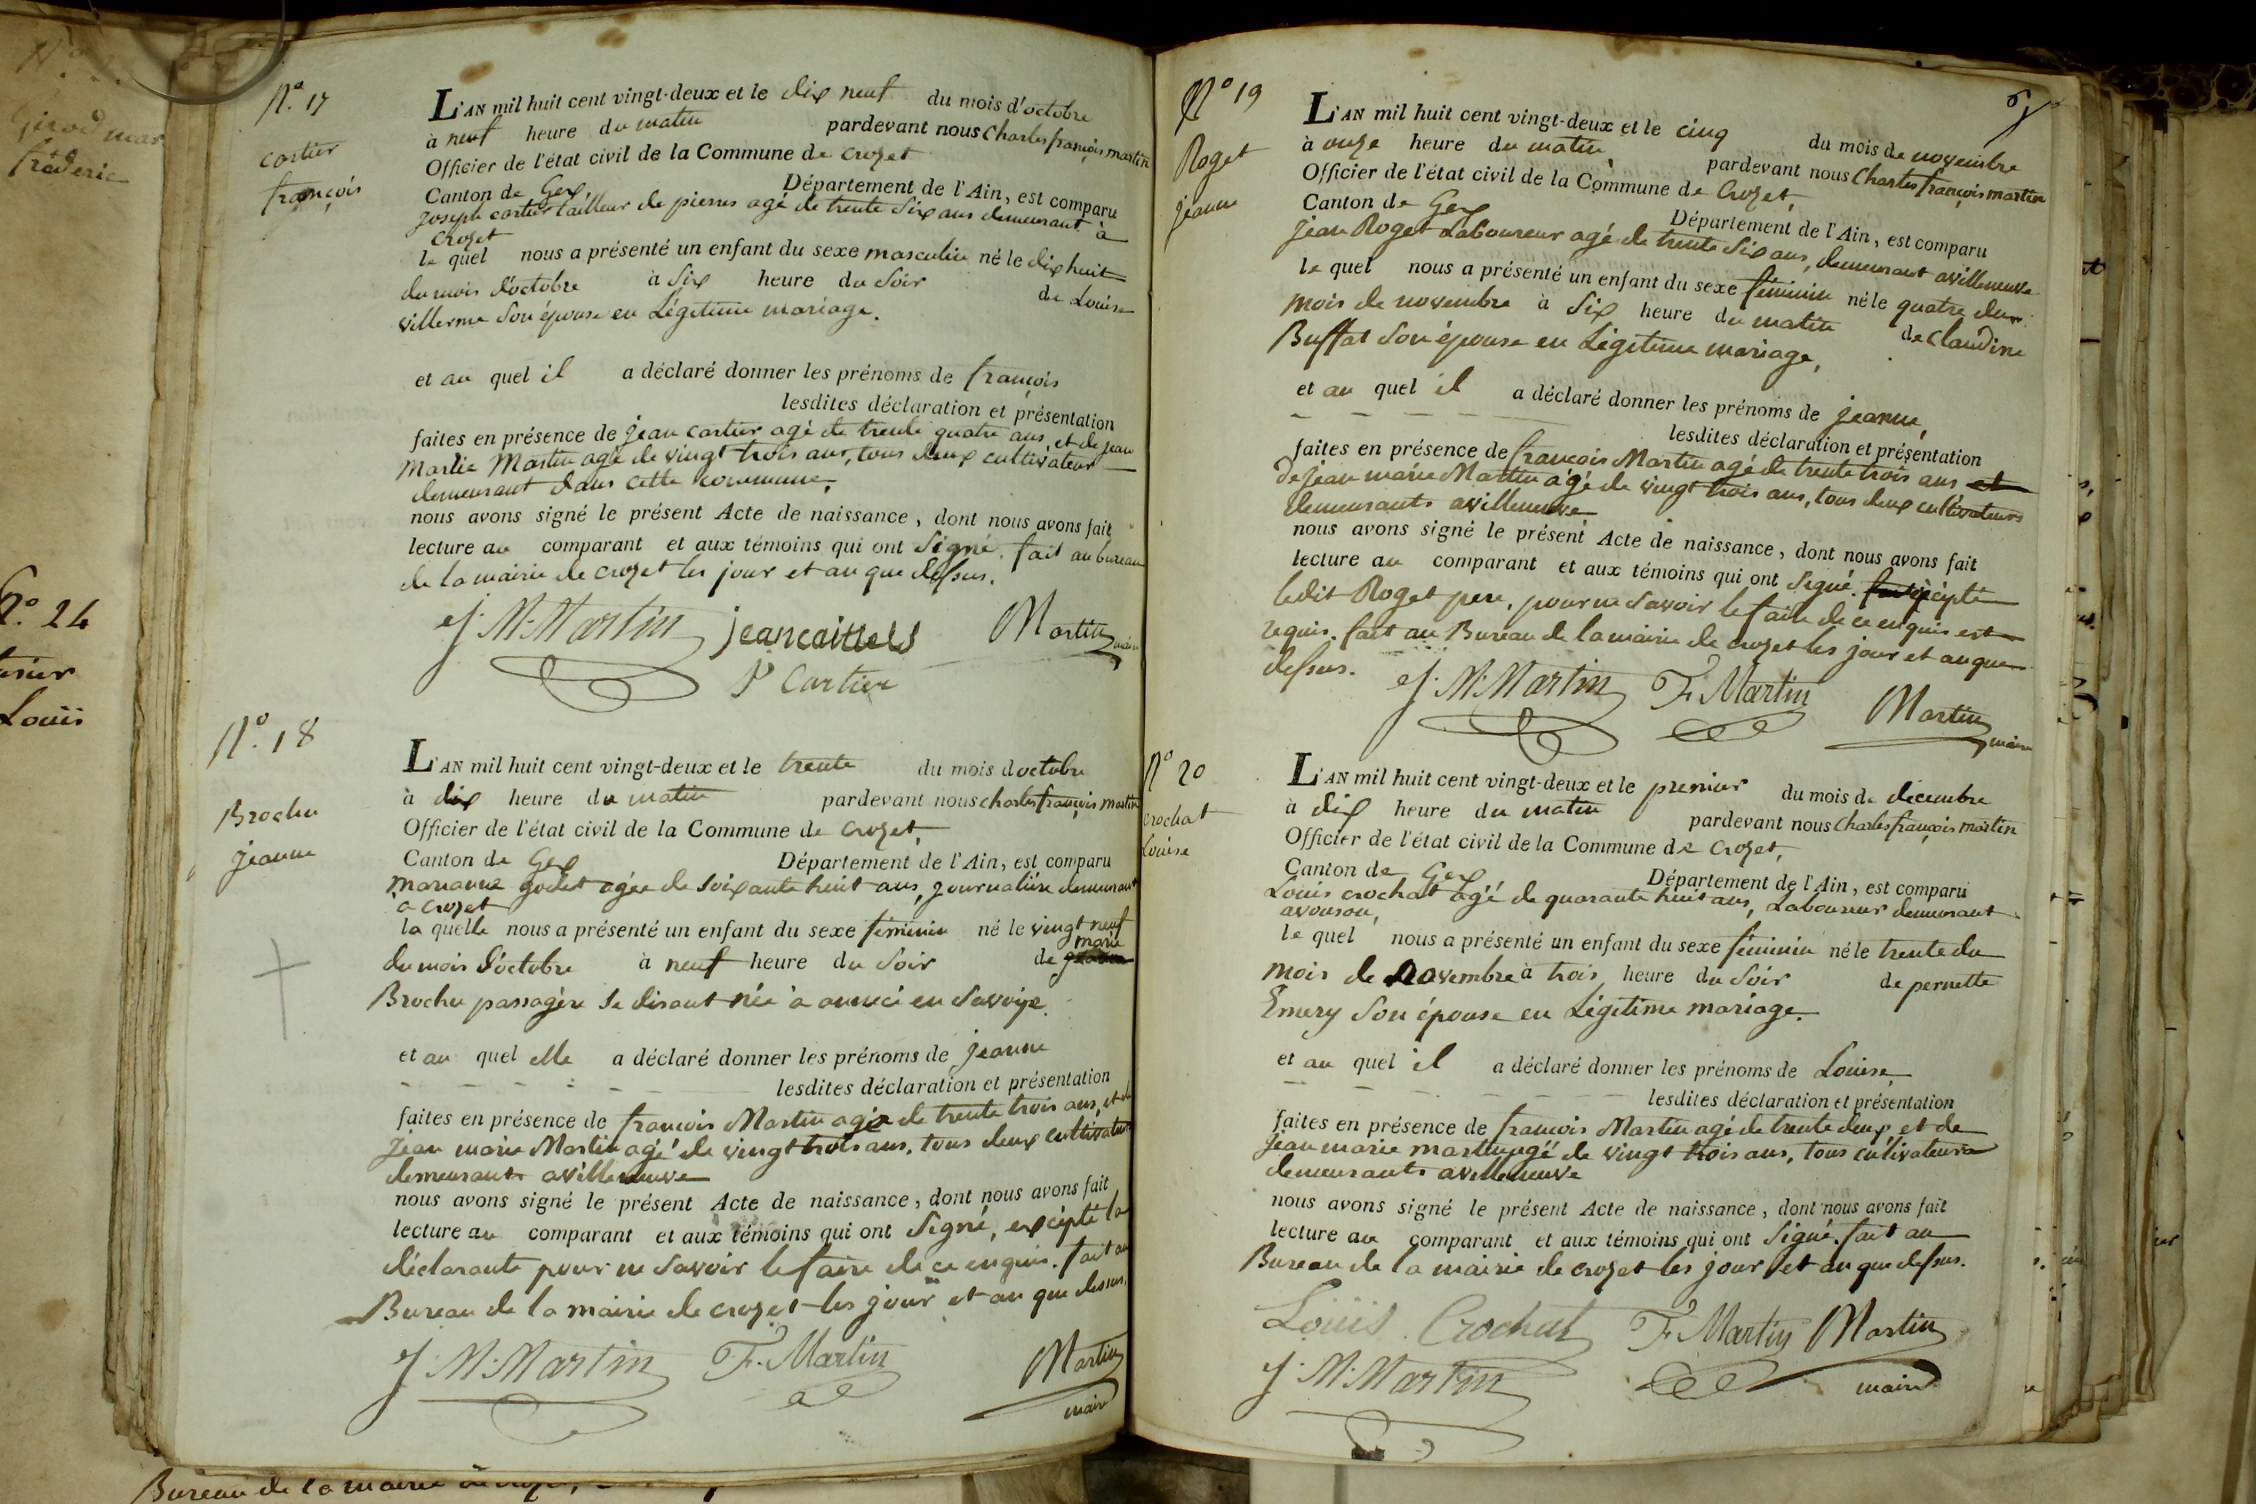 N.º 17
cartier
françois
L'AN mil huit cent vingt-deux et le dix neuf du mois d'octobre
à neuf heure du matin pardevant nous Charles françois martin
Officier de l'état civil de la Commune de crozet
Canton de Gex Département de l'Ain, est comparu
joseph cartier tailleur de pierres agé de trente six ans demeurant à
crozet
le quel nous a présenté un enfant du sexe masculin né le dix huit
du mois d'octobre à six heure du soir de Louise
villerme son épouse en Légitime mariage.
et au quel il a déclaré donner les prénoms de françois
lesdites déclaration et présentation
faites en présence de jean cartier agé de trente quatre ans, et de jean
Marie Martin agé de vingt trois ans, tous deux cultivateur
demeurant dans cette commune,
nous avons signé le présent Acte de naissance, dont nous avons fait
lecture au comparant et aux témoins qui ont signé. fait au bureau
de la mairie de crozet les jour et an que dessus.
J. M. Martin Martin maire
Cartier
N.º 18
Brochu
jeanne
L'AN mil huit cent vingt-deux et le trente du mois d'octobre
à dix heure du matin pardevant nous charles françois martin
Officier de l'état civil de la Commune de crozet,
Canton de Gex Département de l'Ain, est comparu
Marianne godet agée de soixante huit ans, journalière demeurant
a crozet
la quelle nous a présenté un enfant du sexe féminin né le vingt neuf
marie
du mois d'octobre à neuf heure du soir de
Brochu passagère se disant née à anneci en Savoye.
et au quel elle a déclaré donner les prénoms de jeanne
lesdites déclaration et présentation
faites en présence de francois Martin agé de trente trois ans, et de
jean marie Martin agé de vingt trois ans, tous deux cultivateurs
demeurants a villeneuve
nous avons signé le présent Acte de naissance, dont nous avons fait
lecture au comparant et aux témoins qui ont signé, excépté la
déclarante pour ne savoir le faire de ce enquis. fait au
Bureau de la mairie de crozet les jour et an que dessus.
J. M. Martin F. Martin Martin
maire
Nº 19
Roget
jeanne
L'AN mil huit cent vingt-deux et le cinq du mois de novembre
à onze heure du matin pardevant nous Charles françois martin
Officier de l'état civil de la Commune de Crozet,
Canton de Gex Département de l'Ain, est comparu
jean Roget Laboureur agé de trente six ans, demeurant a villeneuve
le quel nous a présenté un enfant du sexe féminin né le quatre du
mois de novembre à six heure du matin de Claudine
Buffat son épouse en Légitime mariage,
et au quel il a déclaré donner les prénoms de jeanne,
lesdites déclaration et présentation
faites en présence de francois Martin agé de trente trois ans et
de jean marie Martin agé de vingt trois ans, tous deux cultivateurs
demeurants a villeneuve
nous avons signé le présent Acte de naissance, dont nous avons fait
lecture au comparant et aux témoins qui ont signé. excépté
ledit Roget pere, pour ne savoir le faire de ce enquis est
requis. fait au Bureau de la mairie de crozet les jour et an que
dessus.
J. M. Martin F. Martin Martin
maire
Nº 20
crochat
Louise
L'AN mil huit cent vingt-deux et le premier du mois de decembre
à dix heure du matin pardevant nous Charles françois martin
Officier de l'état civil de la Commune de crozet,
Canton de Gex Département de l'Ain, est comparu
Louis crochat agé de quarante huit ans, Laboureur demeurant
avouson,
le quel nous a présenté un enfant du sexe féminin né le trente du
mois de novembre à trois heure du soir de pernette
Emery son épouse en Légitime mariage.
et au quel il a déclaré donner les prénoms de Louise,
lesdites déclaration et présentation
faites en présence de francois Martin agé de trente deux et de
jean marie martin agé de vingt trois ans, tous cultivateurs
demeurants a villeneuve
nous avons signé le présent Acte de naissance, dont nous avons fait
lecture au comparant et aux témoins qui ont signé. fait au
Bureau de la mairie de crozet les jour et an que dessus.
Louis Crochat F. Martin Martin
J. M. Martin maire
Nº. 24
Louis
Bureau de la mairie